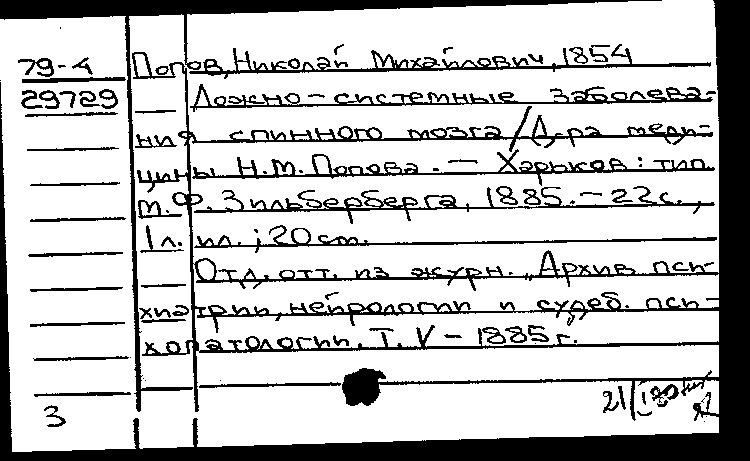 79-4 Попов, Николай Михайлович, 1854
29729 Ложно-системные заболева-
ния спинного мозга / Д-ра меди-
цины Н.М. Попова. — Харьков: тип.
М.Ф. Зильберберга, 1885. — 22 с.,
1 л. ил.; 20 cm.
Отд. отт. из журн. „Архив пси-
хиатрии, нейрологии и судеб. пси-
хопатологии. Т. V — 1885 г."
3 21/I